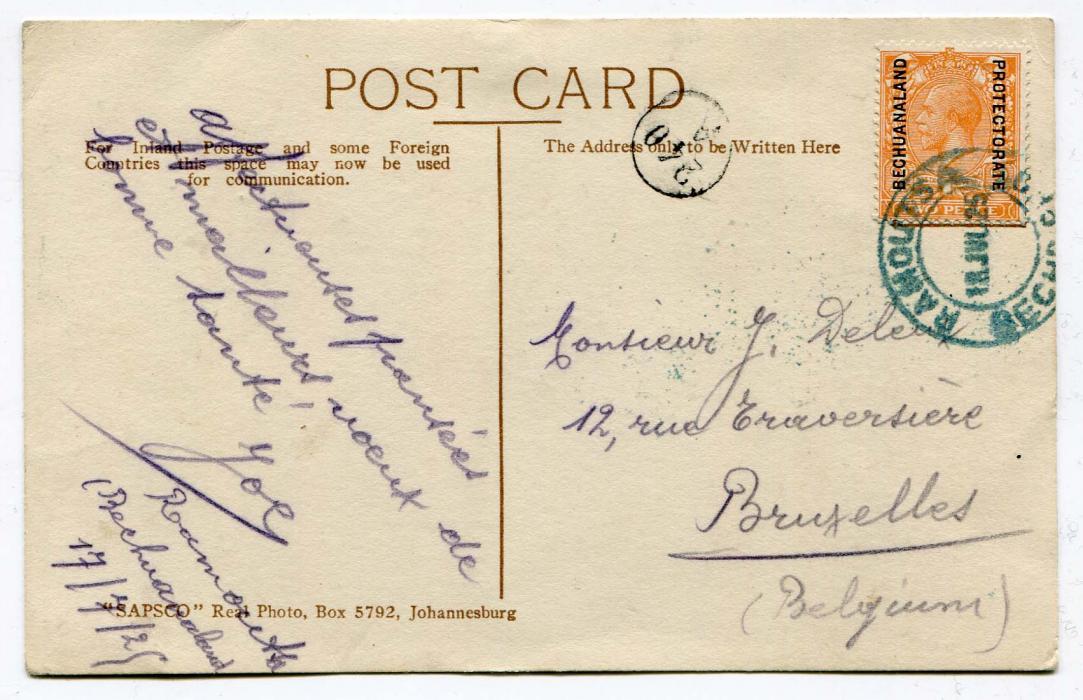 POST CARD
For Inland Postage and some Foreign
Countries this space may now be used
for communication.
The Address only to be Written Here
BECHUANALAND
PROTECTORATE
PENCE
RAMOUTSA
BECH
affectueuses pensées
et meilleurs voeux de
bonne santé
Joe
Ramoutsa
(Bechuanaland
17/7/25
Monsieur J.
12, rue Traversière
Bruxelles
(Belgium)
"SAPSCO" Real Photo, Box 5792, Johannesburg